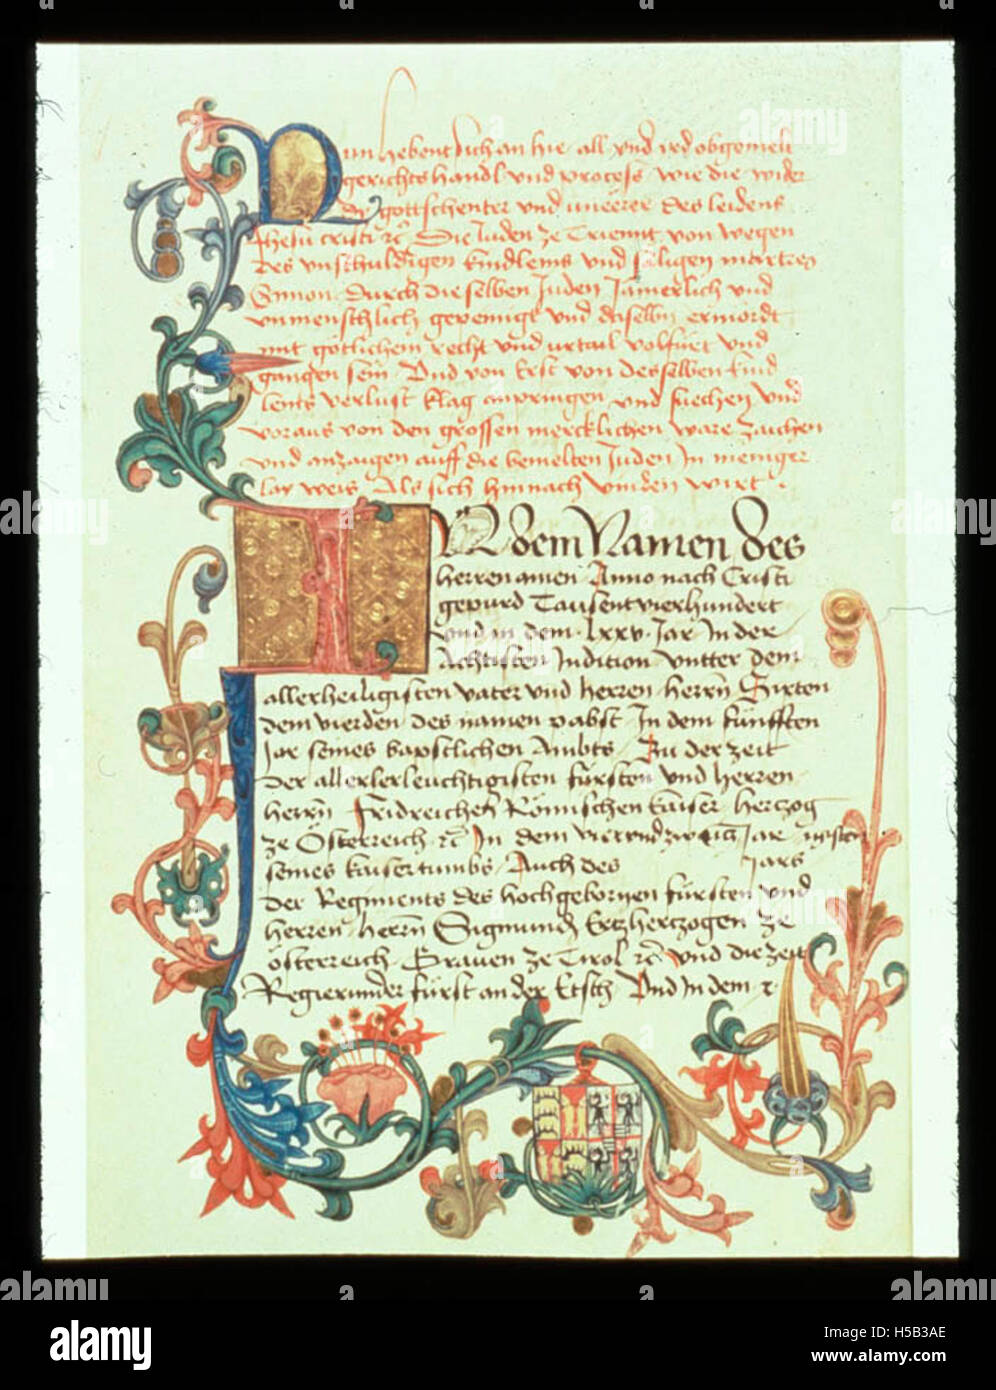 Nun hebent sich an hie all und ird obgemelt
gerichts handl und process wie die wider
dy gottschenter und uneerer des leidens
Jhesu cristi rc Die Juden ze Trienntt von wegen
des unschuldigen kindleins und säligen martrers
Simon durch dieselben Juden Jämerlich und
unmenschlich gepeinigt und daselbn ermördt
mit götlichem recht und urtail volfürt und
gangen sein Und von Erst von desselben kind
leins verlust klag anpringen und suechen und
voraus von den grossen mercklichen ware zaichen
und anzaigen auff die bemelten Juden In meniger
lai weis Als sich hinnach vinden wirt
In dem Namen des
herren amen Anno nach Cristi
gepurd Tausent vierhundert
und in dem lxxv Jar In der
Achtisten Indition untter dem
allerheiligisten vater und herren herrn Sixten
dem vierden des namen pabst In dem fünfften
Jar seines bapstlichen Ambts Zu der zeit
der allerlerleuchtigisten fürsten und herren
herrn Fridreichen Römischen kaiser hertzog
ze Österreich rc In dem vierundzwainczigisten Jar
seines kaisertumbs Auch des Jars
der Regiments des hochgebornen fürsten und
herren herrn Sigmunden Ertzhertzogen ze
österreich Graven ze Tirol rc und die zeit
Regierunder fürst an der Etsch Und In dem
alamy
a
alamy stock photo
H5B3AE
www.alamy.com